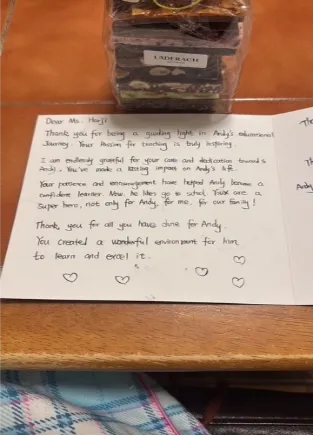 LADERACH
Dear Ms. Harji
Thank you for being a guiding light in Andy's educational
Journey. Your Passion for teaching is truly inspiring.
I am endlessly grateful for your care and dedication towards
Andy. You've made a lasting impact on Andy's life.
Your patience and encouragement have helped Andy become a
confident learner. Now he likes go to school. You are a
Super hero, not only for Andy, for me, for our family!
Thank, you for all you have done for Andy.
You created a wonderful environment for him
to learn and excel it.